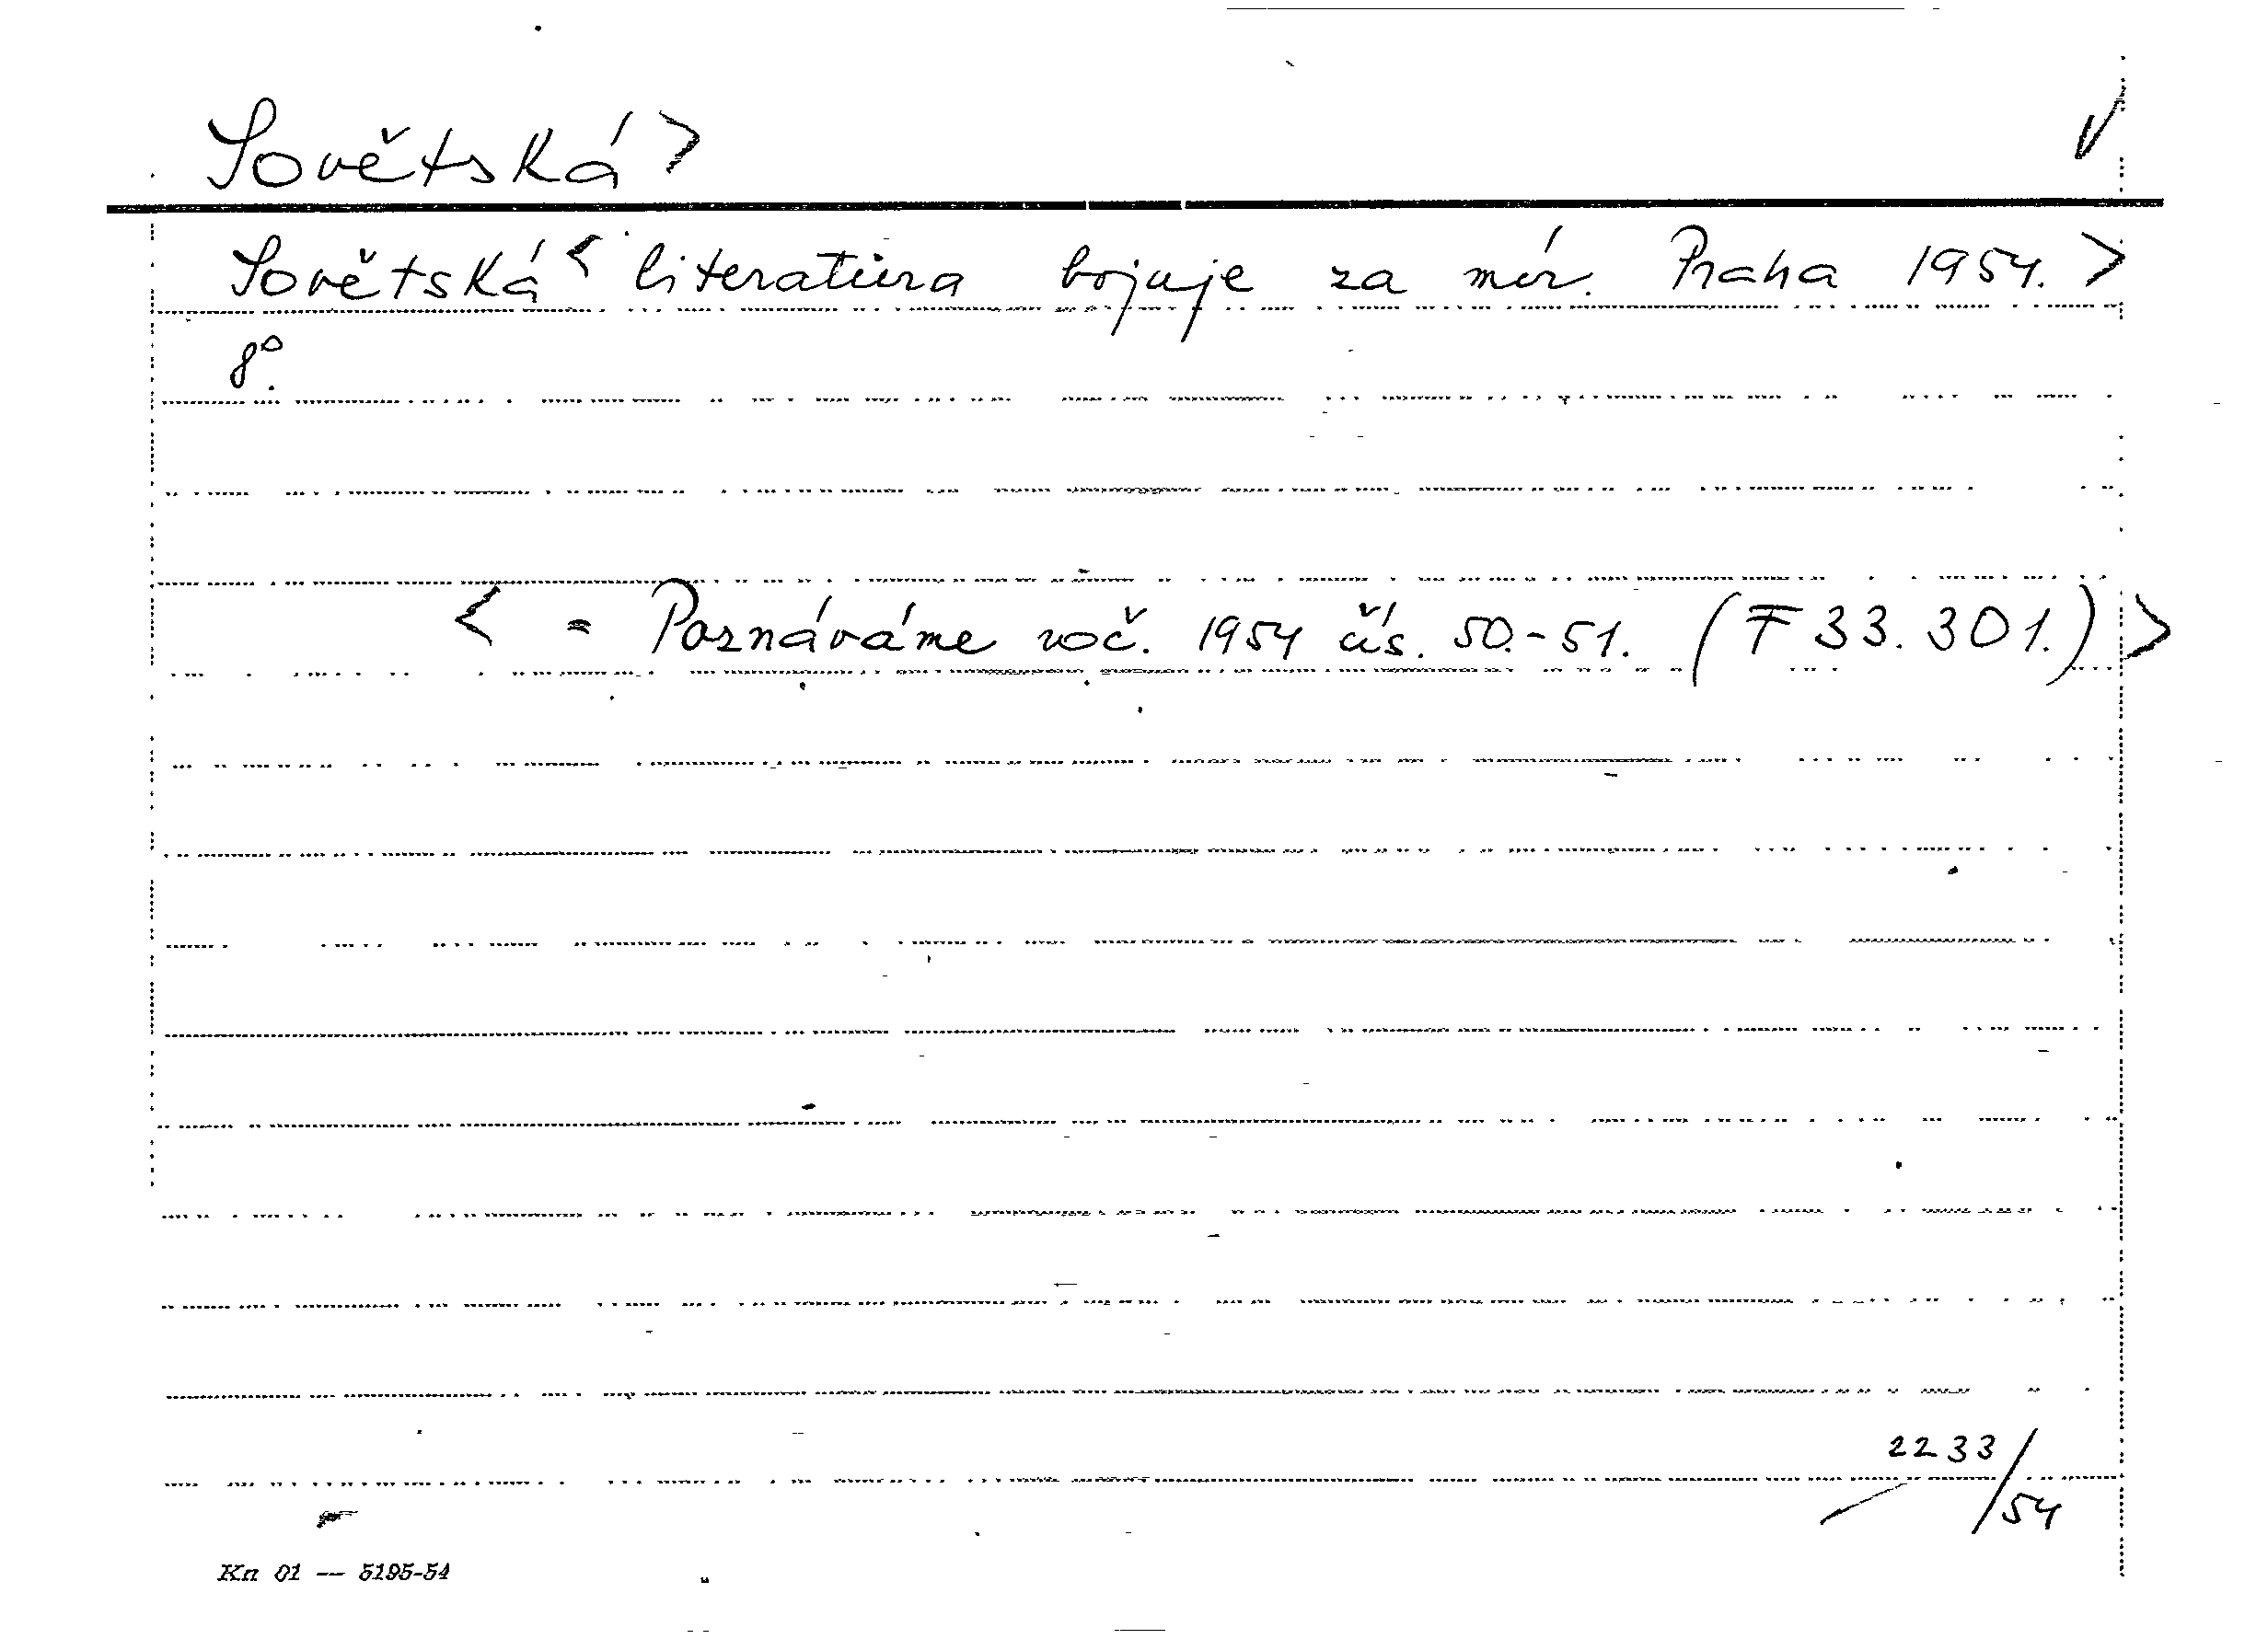 Sovětská >
Sovětská < literatura bojuje za mír. Praha 1954. >
8°.
< = Poznáváme roč. 1954 čís. 50.-51. (F 33.301.) >
2233/54
Kn 01 — 5195-54